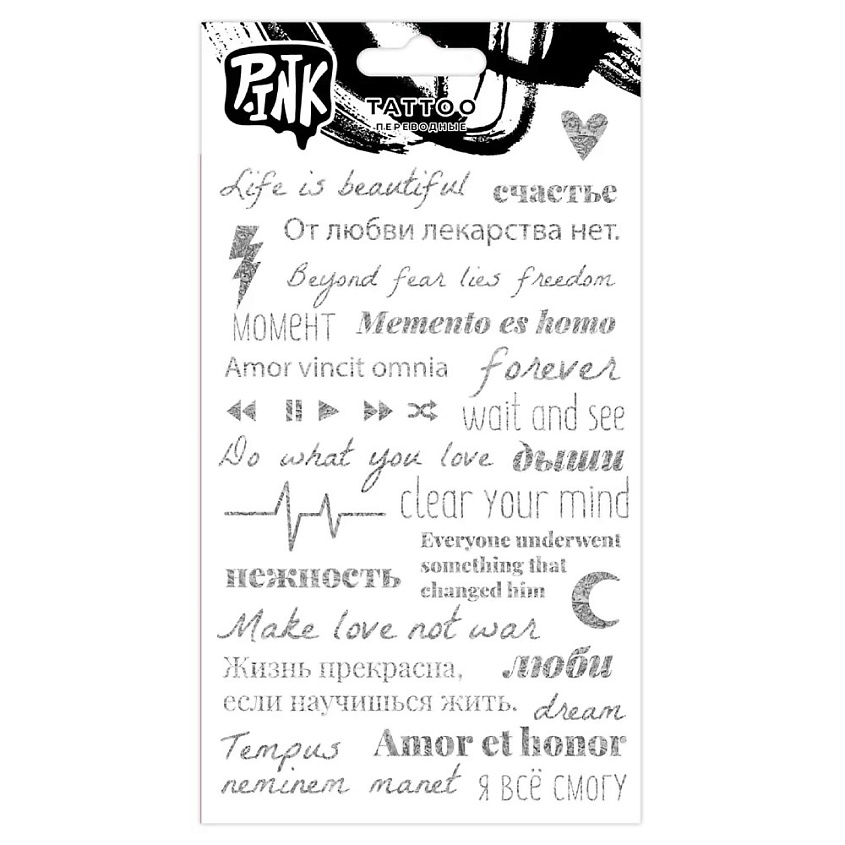 P.INK
TATTOO
ПЕРЕВОДНЫЕ
Life is beautiful
счастье
От любви лекарства нет.
Beyond fear lies freedom
момент
Memento es homo
Amor vincit omnia
forever
wait and see
Do what you love
дыши
clear your mind
Everyone underwent
something that
changed him
нежность
Make love not war
Жизнь прекрасна,
если научишься жить.
люби
dream
Tempus
neminem manet
Amor et honor
я всё смогу